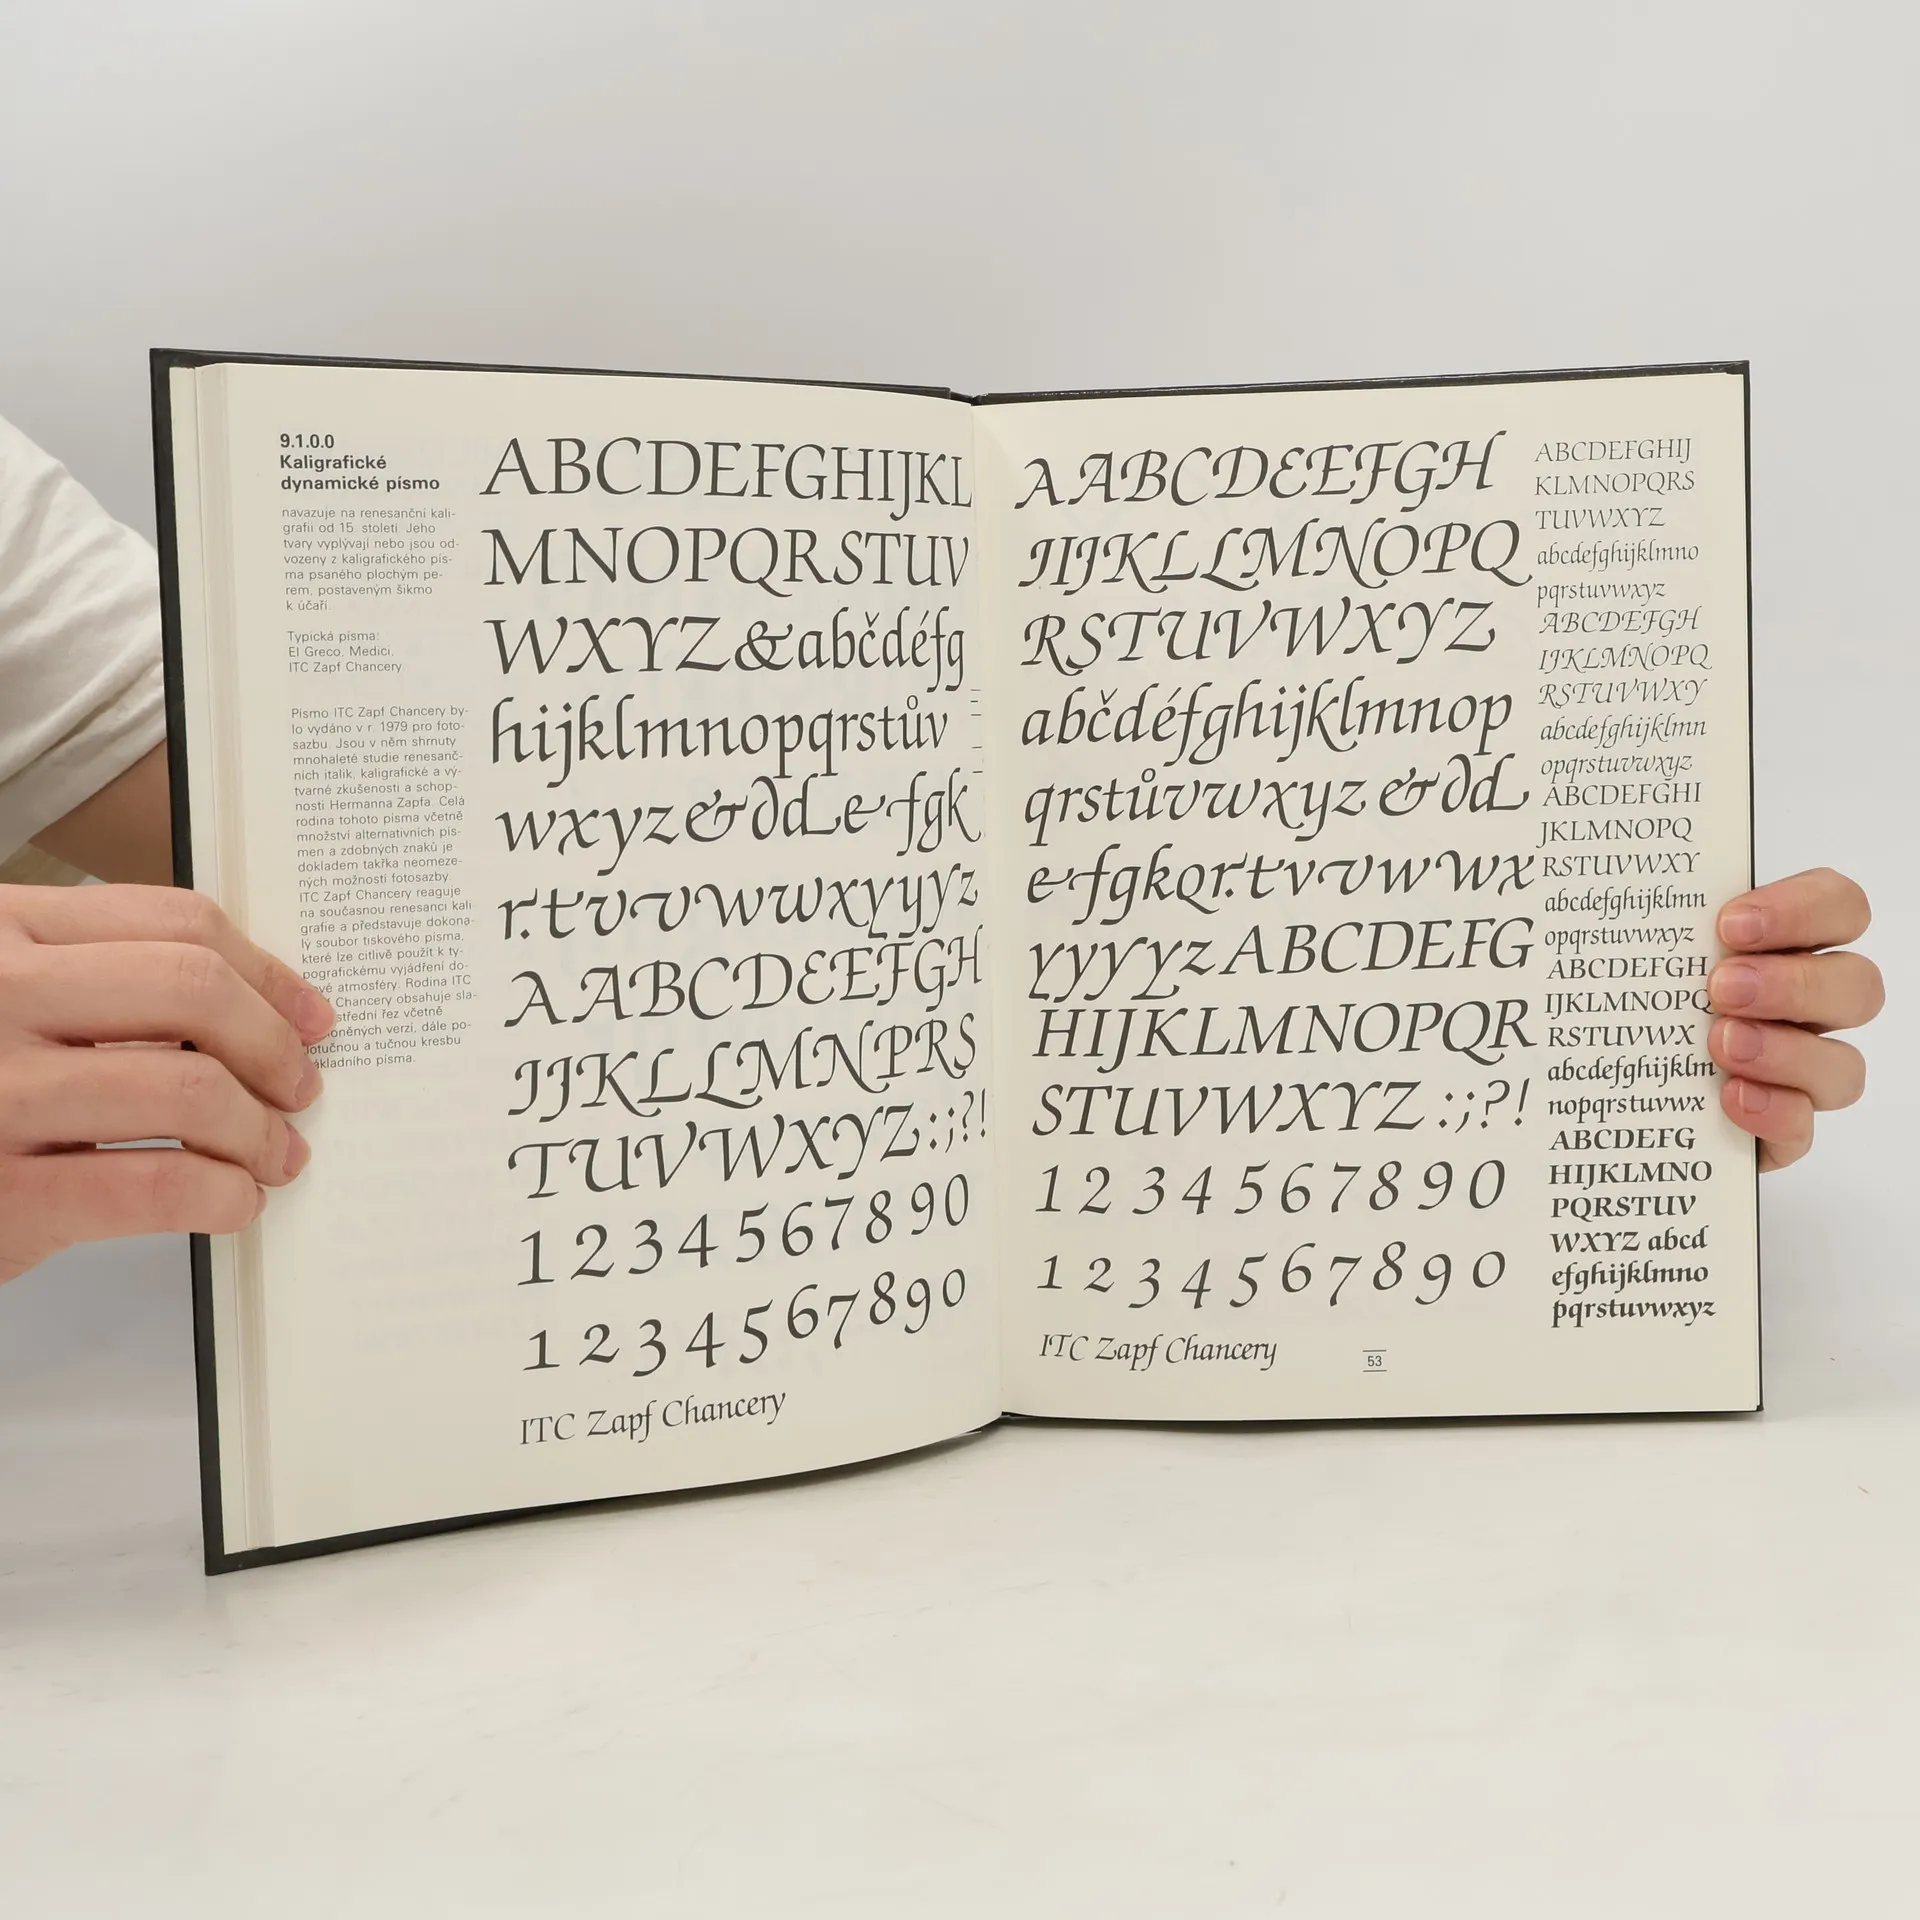 9.1.0.0
Kaligrafické
dynamické písmo
navazuje na renesanční kali-
grafii od 15. století. Jeho
tvary vyplývají nebo jsou od-
vozeny z kaligrafického pís-
ma psaného plochým pe-
rem, postaveným šikmo
k účaří.
Typická písma:
El Greco, Medici,
ITC Zapf Chancery.
Písmo ITC Zapf Chancery by-
lo vydáno v r. 1979 pro foto-
sazbu. Jsou v něm shrnuty
mnohaleté studie renesanč-
ních italik, kaligrafické a vý-
tvarné zkušenosti a schop-
nosti Hermanna Zapfa. Celá
rodina tohoto písma včetně
množství alternativních pís-
men a zdobných znaků je
dokladem takřka neomeze-
ných možností fotosazby.
ITC Zapf Chancery reaguje
na současnou renesanci kali
grafie a představuje dokona-
lý soubor tiskového písma,
které lze citlivě použít k ty-
pografickému vyjádření do-
atmosféry. Rodina ITC
Chancery obsahuje sla-
střední řez včetně
verzí, dále po-
a tučnou kresbu
písma.
ABCDEFGHIJKL
MNOPQRSTUV
WXYZ&abčdéfg
hijklmnopqrstův
wxyz&ddefgk
r.tvvwwxyyyz
AABCDEEFGH
IJKLLMNPRS
TUVWXYZ:;?!
1234567890
1234567890
ITC Zapf Chancery
AABCDEEFGH
IIJKLLMNOPQ
RSTUVWXYZ
abčdéfghijklmnop
qrstůvwxyz&dd
efgkqr.tvvwwx
yyyyzABCDEFG
HIJKLMNOPQR
STUVWXYZ:;?!
1234567890
1234567890
ITC Zapf Chancery
53
ABCDEFGHIJ
KLMNOPQRS
TUVWXYZ
abcdefghijklmno
pqrstuvwxyz
ABCDEFGH
IJKLMNOPQ
RSTUVWXY
abcdefghijklmn
opqrstuvwxyz
ABCDEFGHI
JKLMNOPQ
RSTUVWXY
abcdefghijklmn
opqrstuvwxyz
ABCDEFGH
IJKLMNOPQ
RSTUVWX
abcdefghijklm
nopqrstuvwx
ABCDEFG
HIJKLMNO
PQRSTUV
WXYZ abcd
efghijklmno
pqrstuvwxyz